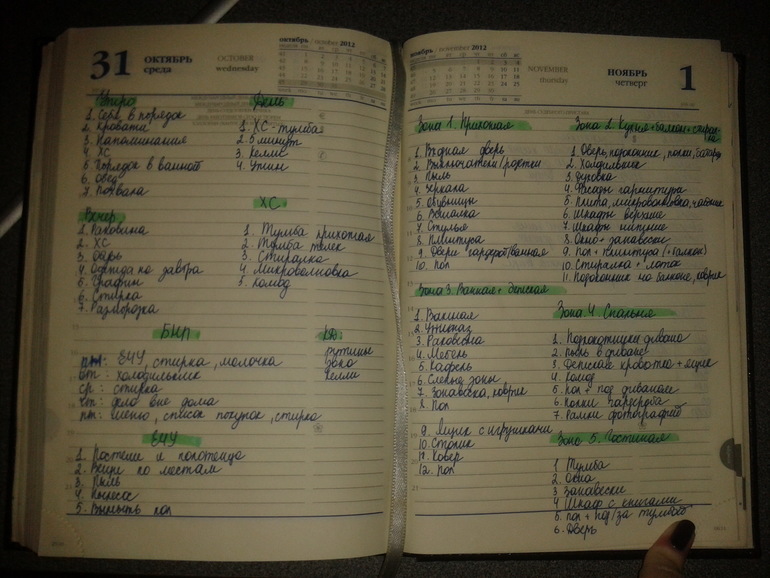 31
ОКТЯБРЬ
среда
OCTOBER
wednesday
октябрь / october 2012
Утро
1. Себя в порядок
2. Кровати
3. Напоминания
4. ХС
5. Порядок в ванной
6. Обед
7. Похвала
День
1. ХС - тумба
2. 5 минут
3. Хелпис
4. Ужин
ХС
1. Тумба прихожая
2. Тумба телек
3. Стиралка
4. Микроволновка
5. Комод
Вечер
1. Раковина
2. ХС
3. Обувь
4. Одежда на завтра
5. Графин
6. Стирка
7. Разморозка
БНП
пн: ЕЧУ, стирка, молочка
вт: холодильник
ср: стирка
чет: дело вне дома
пт: меню, список покупок, стирка
КД
рутины
зона
хелпи
ЕЧУ
1. Постели и полотенца
2. Вещи по местам
3. Пыль
4. Пылесос
5. Вымыть пол
ноябрь / november 2012
NOVEMBER
thursday
НОЯБРЬ
четверг
1
Зона 1. Прихожая
1. Входная дверь
2. Выключатели/розетки
3. Пыль
4. Зеркала
5. Обувницы
6. Вешалка
7. Стулья
8. Плинтура
9. Двери гардероб/ванная
10. Пол
Зона 2. Кухня+балкон+стиралка
1. Дверь, подоконник, полки, батарея
2. Холодильник
3. Духовка
4. Фасады гарнитура
5. Плита, микроволновка, чайник
6. Шкафы верхние
7. Шкафы нижние
8. Окно + занавески
9. Пол + плинтура (+балкон)
10. Стиралка + лоток
11. Подоконник на балконе, коврик
Зона 3. Ванная + детская
1. Ванная
2. Унитаз
3. Раковина
4. Мебель
5. Кафель
6. Слепые зоны
7. Занавеска, коврик
8. Пол
9. Ящик с игрушками
10. Столик
11. Ковер
12. Пол
Зона 4. Спальня
1. Подлокотники дивана
2. Пыль в диване
3. Детская кроватка + ящик
4. Комод
5. Пол + под диваном
6. Полки гардероба
7. Рамки фотографий
Зона 5. Гостиная
1 Тумба
2. Окна
3 Занавески
4 Шкаф с книгами
5. Пол + под/за тумбой
6. Дверь